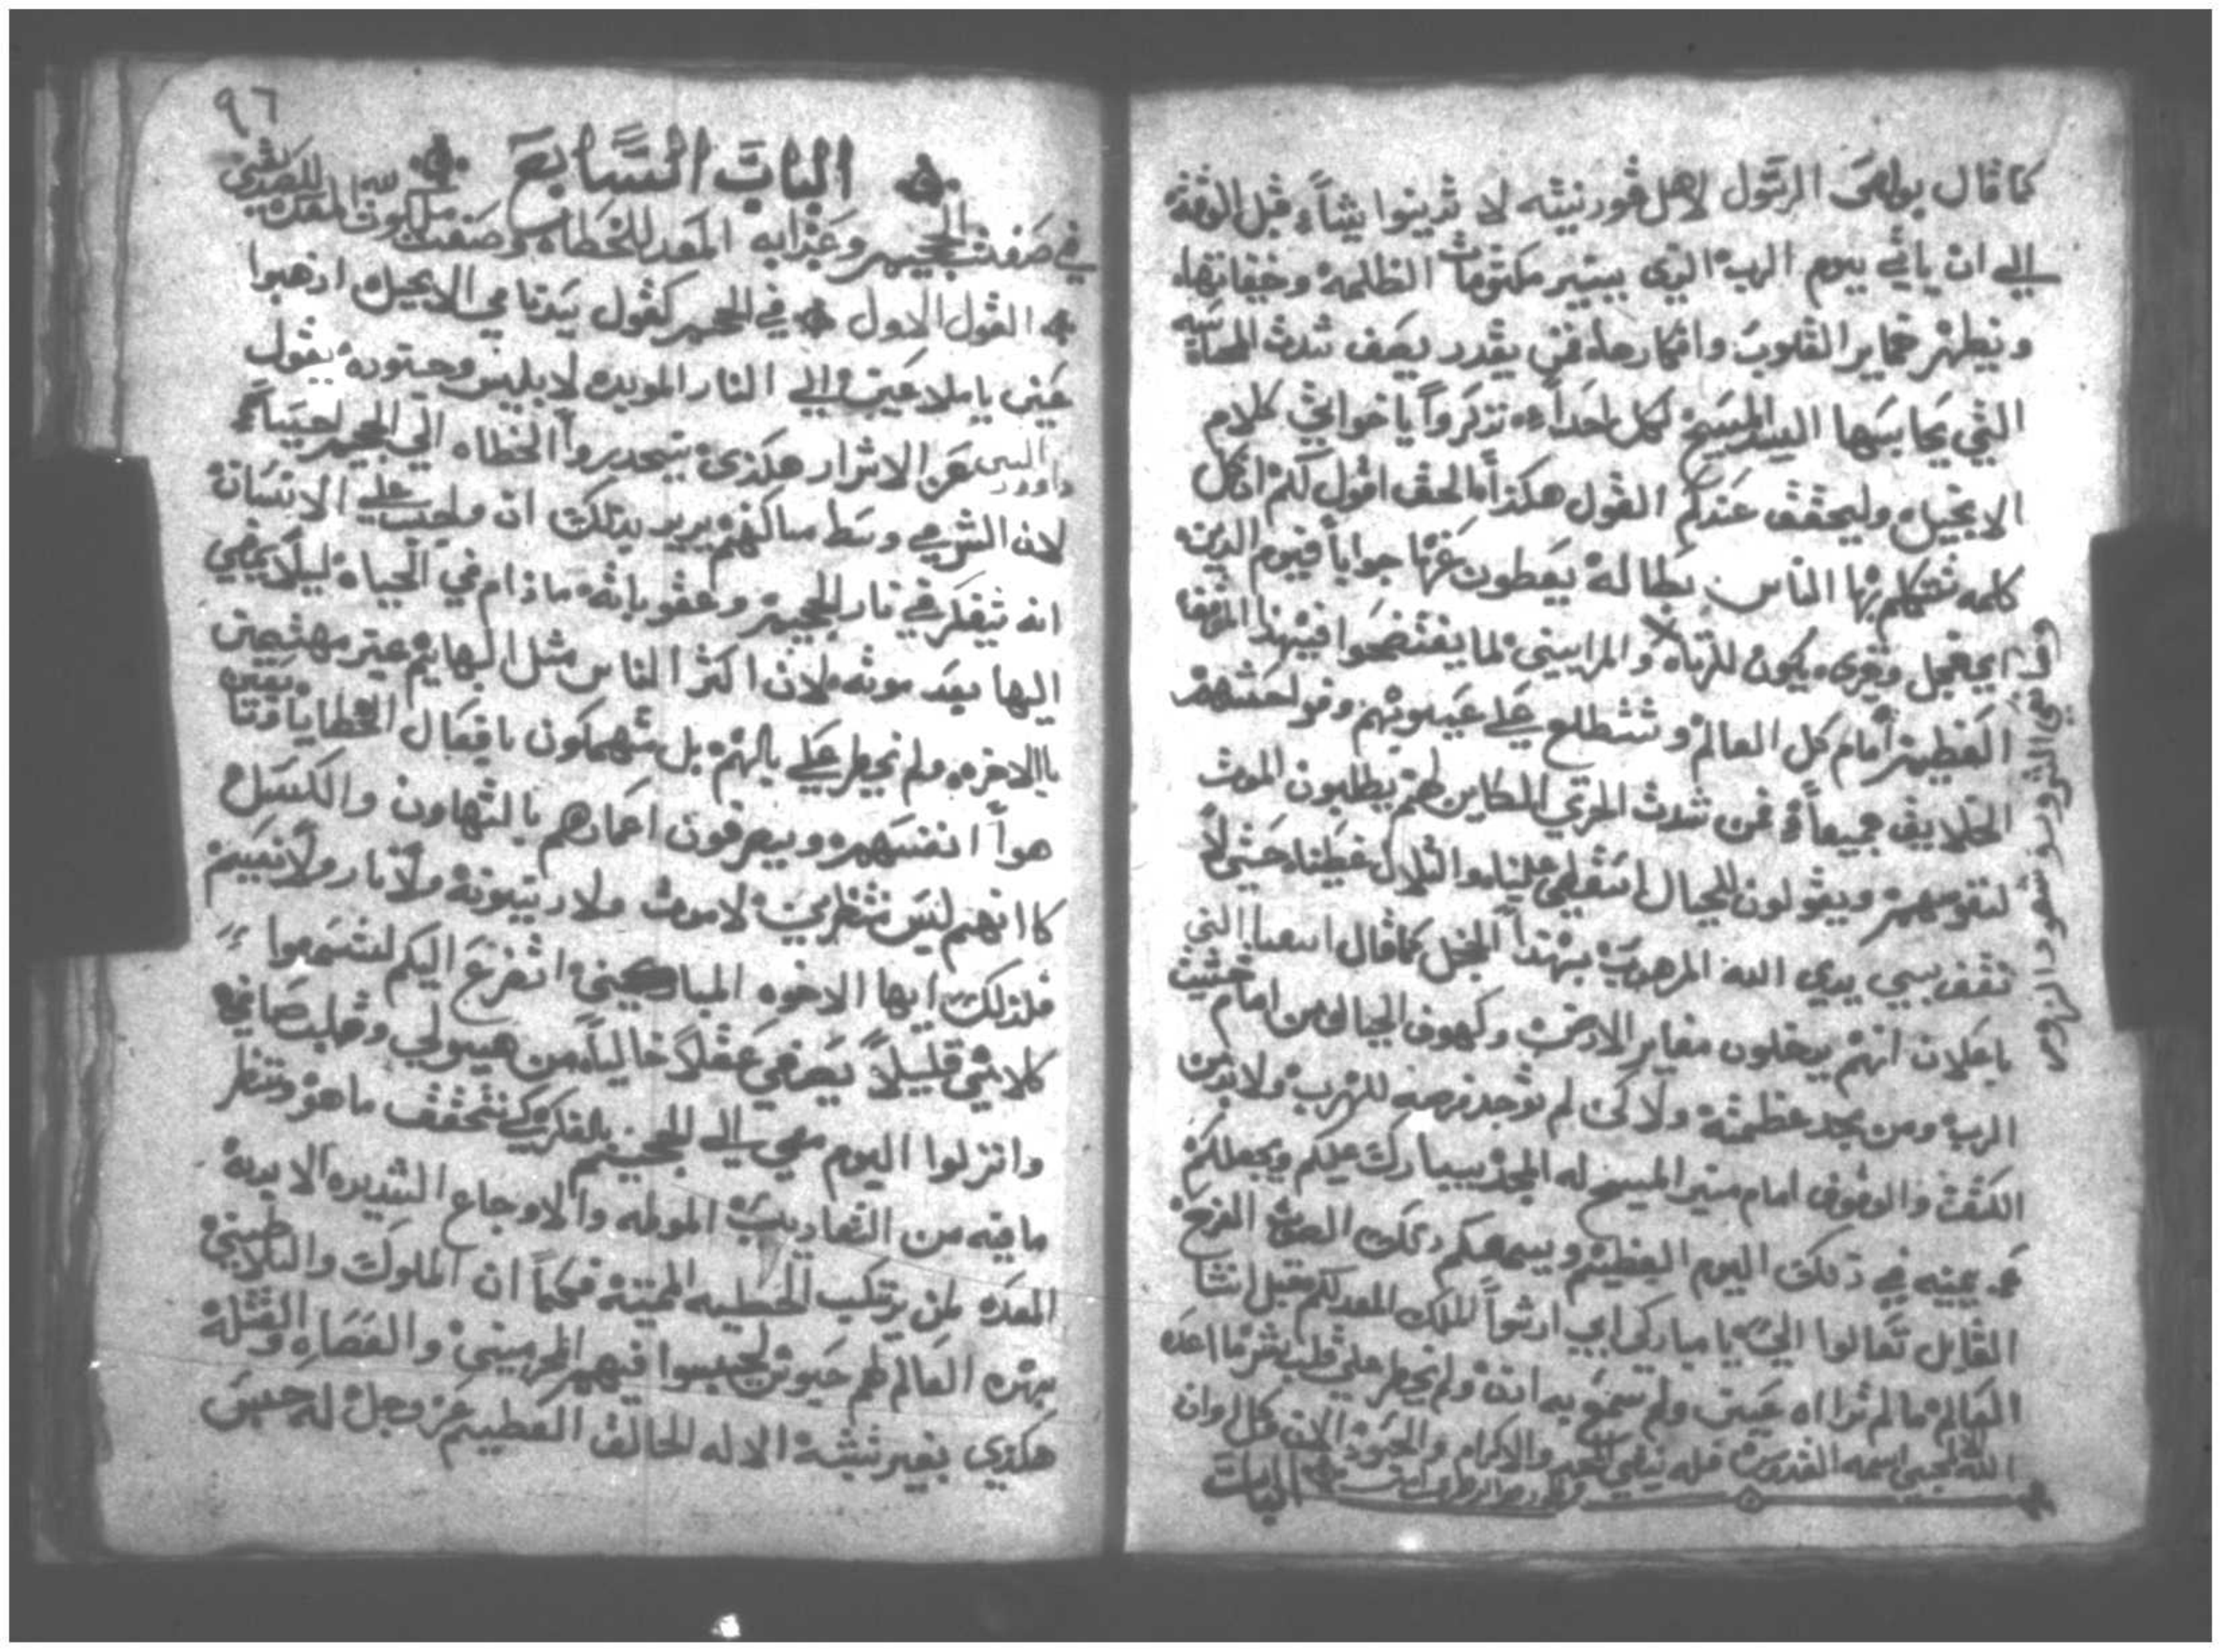 كما قال بولص الرسول لاهل قورنيته لا تدينوا شياً قبل الوقت
الي ان ياتي يوم الرب الذي يبير مكتومات الظلمه وخفاتها
ويظهر ضماير القلوب وافكارها فمن يقدر يصف شدت المحاسبه
التي يحاسبها السيد المسيح لكل احداً تذكروا يا خواتي كلام
الانجيل وليحقق عندكم القول هكذا الحق اقول لكم ان كل
كلمه تتكلم بها الناس بطاله يعطون عنها جواباً فيوم الدين
اي خجل وخزى يكون للزناه والمرايين لما يفتضحوا فيهذا
العظيم امام كل العالم وتتطلع علي عيوبهم وفواحشهم
الخلايق جميعاً فمن شدت الخزي الكاين لهم يطلبون الموت
لنفوسهم ويقولون للجبال اسقطي علينا والتلال غطينا حتي لا
نقف بين يدي الله المرهوب بهذا الخجل كما قال اشعيا النبي
باعلان انهم يدخلون مغاير الارض وكهوف الجبال من امام خشيت
الرب ومن مجد عظمته ولاكن لم توجد فرصه للهرب ولا بد من
الكشف والوقوف امام منبر المسيح له المجد يبارك عليكم ويجعلكم
عن يمينه في ذلك اليوم العظيم ويسمعكم ذلك الصوت الفرح
القايل تعالوا الي يا مباركي ابي ارثوا الملك المعد لكم قبل انشا
العالم ما لم تراه عين ولم تسمع به اذن ولم يخطر علي قلب بشر ما اعده
الله لمحبي اسمه القدوس فله ينبغي المجد والاكرام والسجود الان وكل اوان
الباب
٩٦
الباب السابع
في صفت الجحيم وعذابه المعد للخطاه وصفت ملكوت الله المعده للصديقين
القول الاول في الجحيم كقول سيدنا في الانجيل اذهبوا
عني يا ملاعين الي النار الموبده لابليس وجنوده يقول
داوود النبي عن الاشرار هكذى ينحدروا الخطاه الي الجحيم احياً
لان الشر في وسط مساكنهم يريد بذلك ان واجب علي الانسان
انه يتفكر في نار الجحيم وعقوباته ما دام في الحياه ليلا يمضي
اليها بعد موته لان اكثر الناس مثل البهايم غير مهتمين
باالاخره ولم يخطر علي بالهم بل منهمكون بافعال الخطايا وتابعين
هوا انفسهم ويصرفون اعمارهم بالتهاون والكسل
كاانهم ليس منتظرين لا موت ولا دينونة ولا نار ولا نعيم
فلذلك ايها الاخوه المباركين اتضرع اليكم لتسمعوا
كلامي قليلاً بصرفي عقلاً خالياً من هيولي وقلب صاغي
وانزلوا اليوم معي الي الجحيم بالفكر كي نتحقق ما هو وننظر
ما فيه من التعاديب المولمه والاوجاع الشديده الابديه
المعده لمن يرتكب الخطيه المميته فكما ان الملوك والسلاطين
بهذه العالم لهم حبوس ليحبسوا فيهم المجرمين والعصاه والقتله
هكذي بغير تشبه الاله الخالق العظيم عز وجل له حبس